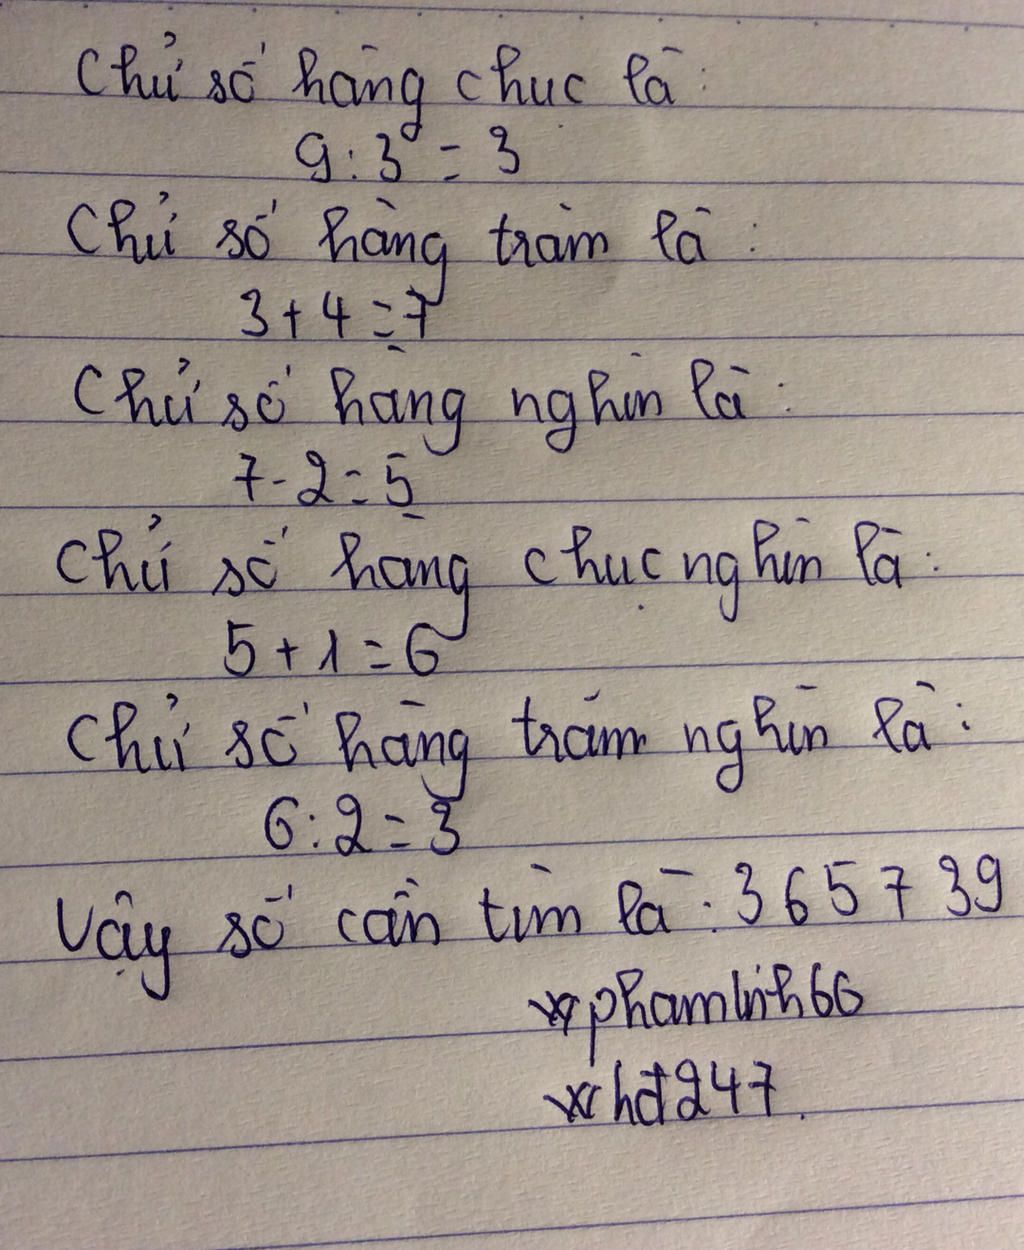 Chử số hàng chuc là:
9 : 3 = 3
Chử số hàng tràm là :
3 + 4 = 7
Chử số hàng nghìn là :
7 - 2 = 5
Chử số hàng chục nghìn là :
5 + 1 = 6
Chử số hàng trám nghìn là :
6 : 2 = 3
Vậy số cần tìm là : 3 6 5 7 3 9
phamlinh66
hđ247